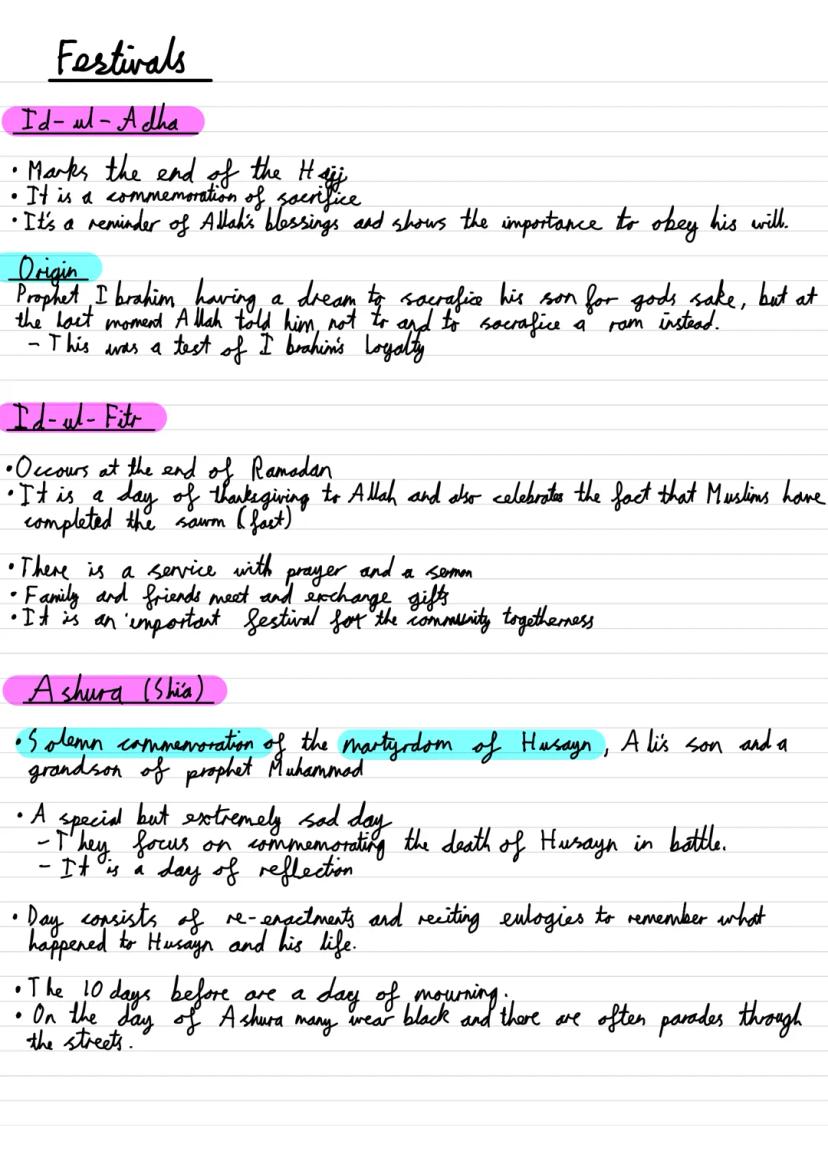 Festivals
Id-ul-Adha
• Marks the end of the Hajj
• It is a commemoration of sacrifice
• It's a reminder of Allah's blessings and shows the importance to obey his will.
Origin
Prophet Ibrahim having a dream to sacrafice his son for gods sake, but at
the last moment Allah told him not to and to sacrafice a ram instead.
- This was a test of Ibrahim's Loyalty
Id-ul-Fitr
• Occours at the end of Ramadan
• It is a day of thanksgiving to Allah and also celebrates the fact that Muslims have
completed the sawm (fast)
• There is a service with prayer and a
• Family and friends meet and exchange gifts
• It is an important festival for the community togetherness
Ashura (Shi'a)
• Solemn commemoration of the martyrdom of Husayn, Ali's son and a
grandson of prophet Muhammad
• A special but extremely sad day
- They focus on commemorating the death of Husayn in battle.
- It is a day of reflection
• Day consists of re-enactments and reciting eulogies to remember what
happened to Husayn and his life.
• The 10 days before are a day of mourning.
• On the day of Ashura many wear black and there are often parades through
the streets.